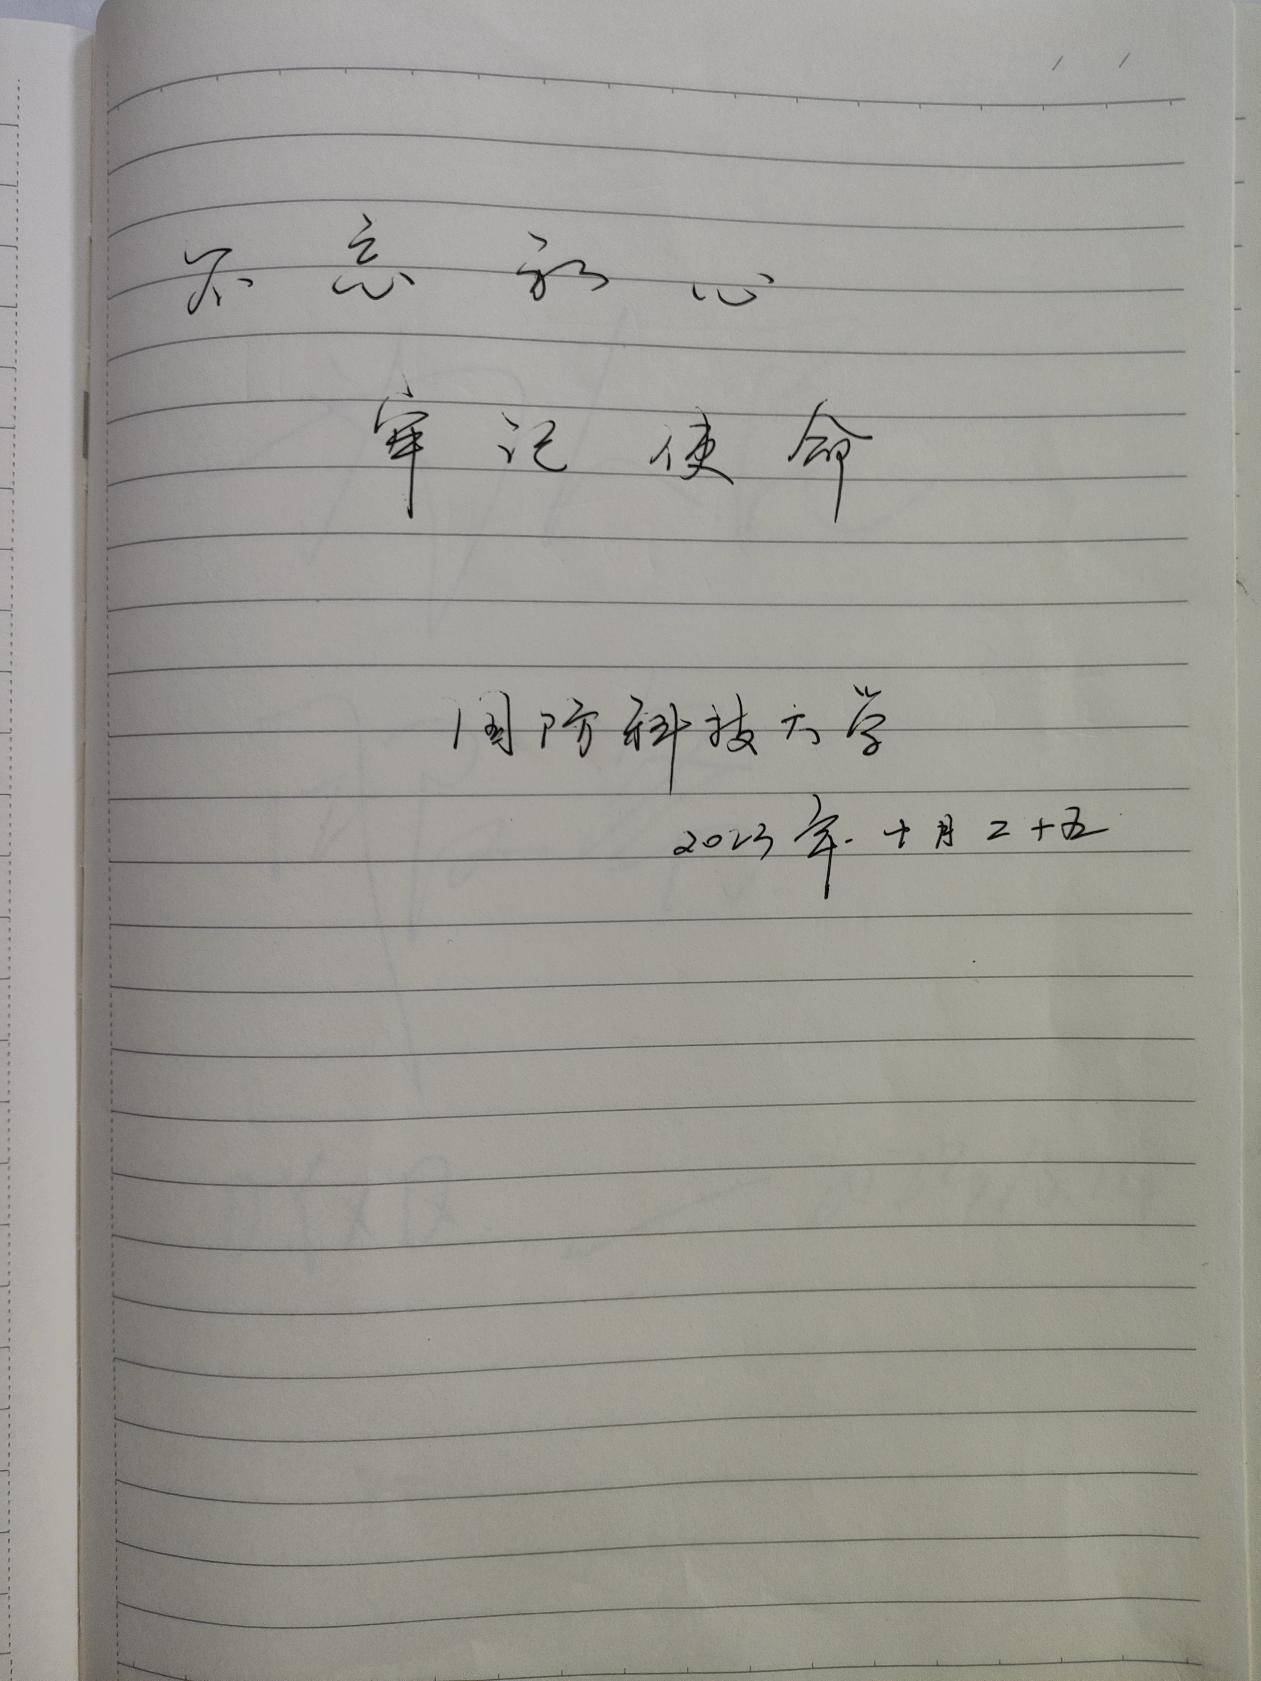 不忘初心
牢记使命
国防科技大学
2023年.十月二十五